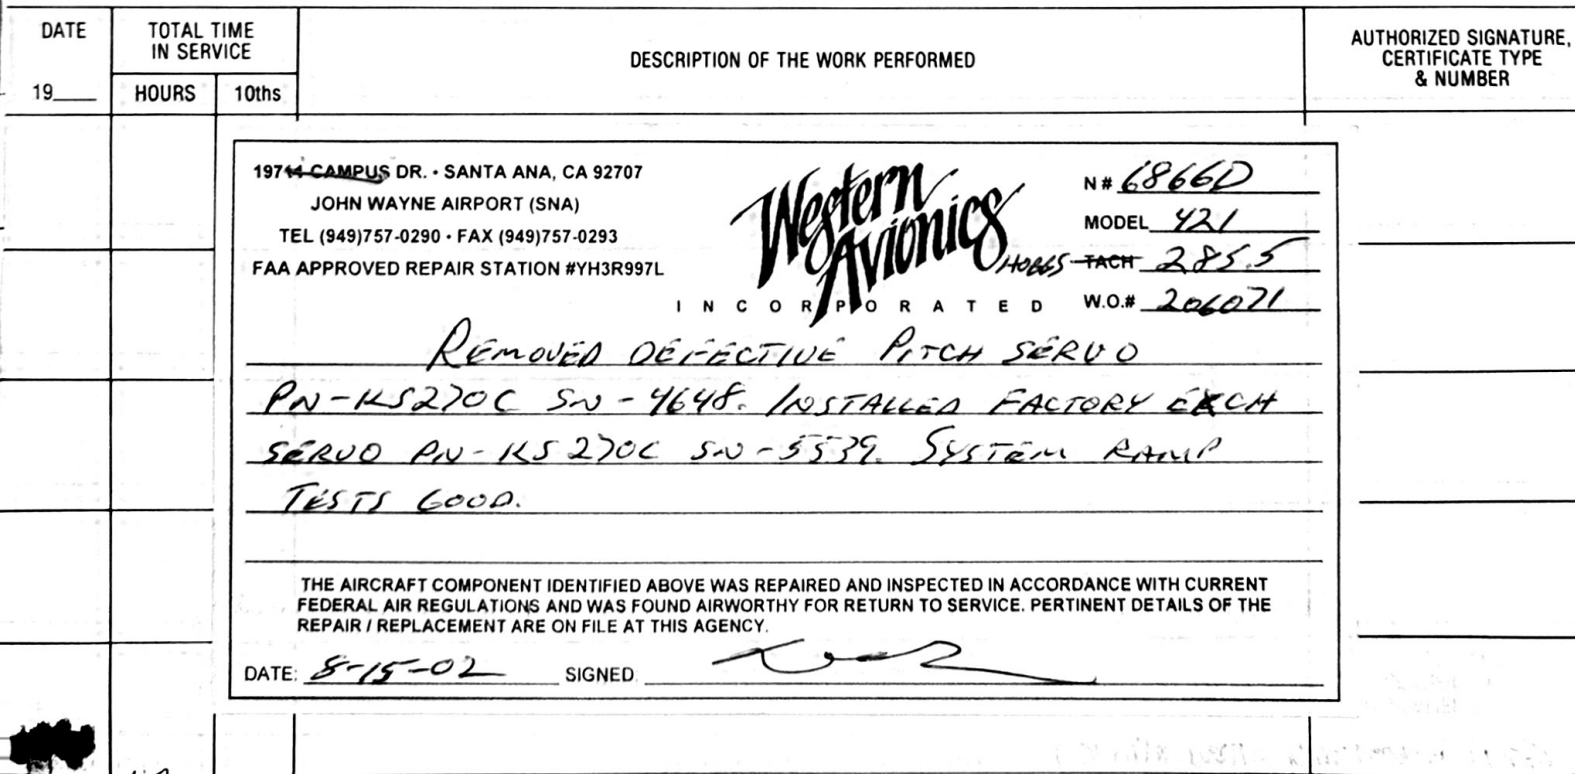 DATE
TOTAL TIME
IN SERVICE
DESCRIPTION OF THE WORK PERFORMED
AUTHORIZED SIGNATURE,
CERTIFICATE TYPE
& NUMBER
19
HOURS
10ths
19714 CAMPUS DR. • SANTA ANA, CA 92707
JOHN WAYNE AIRPORT (SNA)
TEL (949)757-0290 • FAX (949)757-0293
FAA APPROVED REPAIR STATION #YH3R997L
Western
Avionics
INCORPORATED
N# 6866D
MODEL 421
HOBBS TACH 285.5
W.O.# 206071
REMOVED DEFECTIVE PITCH SERVO
PN-KS270C SN-4648. INSTALLED FACTORY EXCH
SERVO PN-KS270C SN-5539. SYSTEM RAMP
TESTS GOOD.
THE AIRCRAFT COMPONENT IDENTIFIED ABOVE WAS REPAIRED AND INSPECTED IN ACCORDANCE WITH CURRENT
FEDERAL AIR REGULATIONS AND WAS FOUND AIRWORTHY FOR RETURN TO SERVICE. PERTINENT DETAILS OF THE
REPAIR / REPLACEMENT ARE ON FILE AT THIS AGENCY.
DATE: 8-15-02 SIGNED